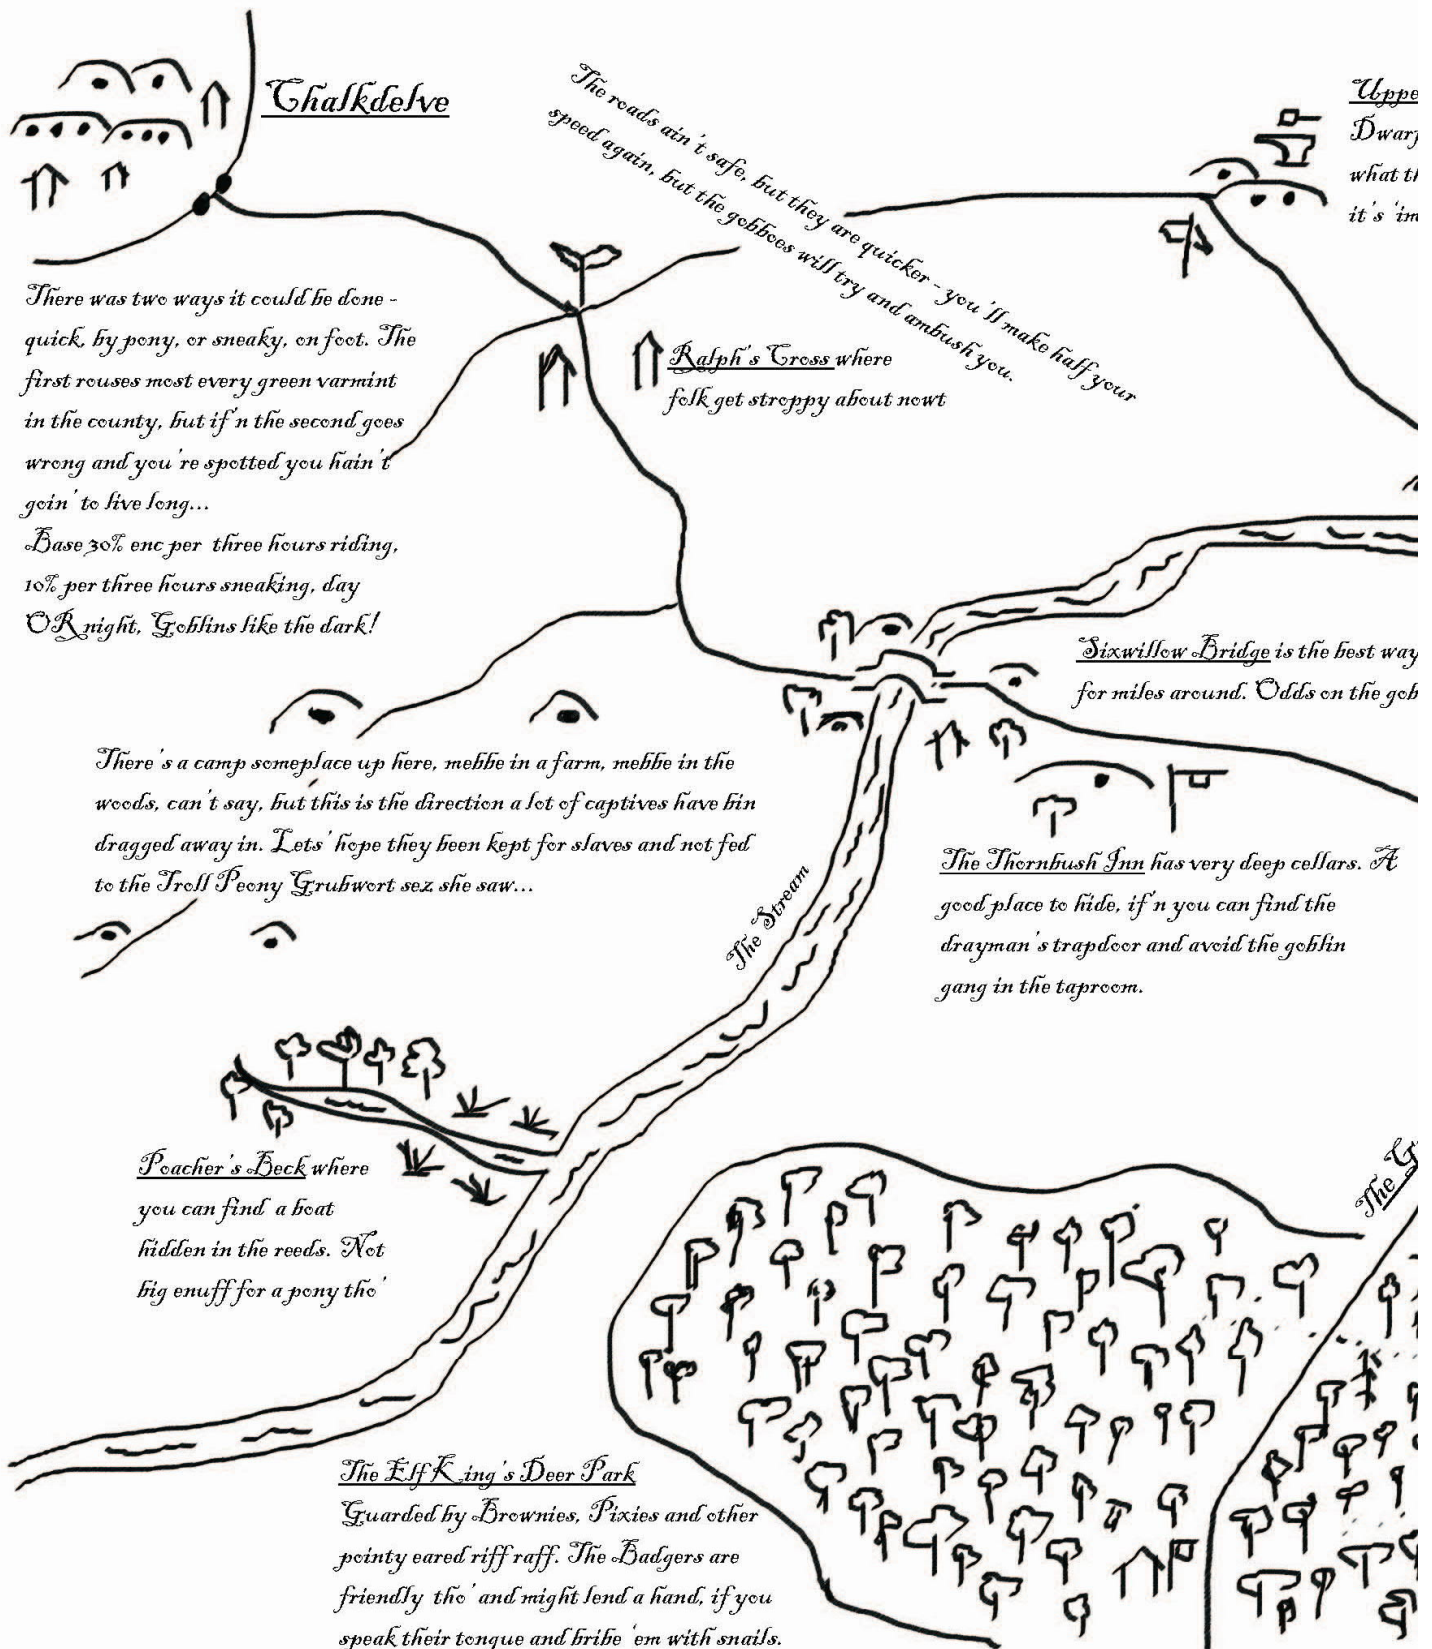 Chalkdelve
The roads ain't safe, but they are quicker - you'll make half your
speed again, but the gobboes will try and ambush you.
Uppe
Dwarf
what th
it's 'im
There was two ways it could be done -
quick, by pony, or sneaky, on foot. The
first rouses most every green varmint
in the county, but if'n the second goes
wrong and you're spotted you hain't
goin' to live long...
Base 30% enc per three hours riding,
10% per three hours sneaking, day
OR night, Goblins like the dark!
Ralph's Cross where
folk get stroppy about nowt
Sixwillow Bridge is the best way
for miles around. Odds on the gob
There's a camp someplace up here, mebbe in a farm, mebbe in the
woods, can't say, but this is the direction a lot of captives have bin
dragged away in. Lets' hope they been kept for slaves and not fed
to the Troll Peony Grubwort sez she saw...
The Stream
The Thornbush Inn has very deep cellars. A
good place to hide, if'n you can find the
drayman's trapdoor and avoid the goblin
gang in the taproom.
Poacher's Beck where
you can find a boat
hidden in the reeds. Not
big enuff for a pony tho'
The G
The Elf King's Deer Park
Guarded by Brownies, Pixies and other
pointy eared riff raff. The Badgers are
friendly tho' and might lend a hand, if you
speak their tongue and bribe 'em with snails.